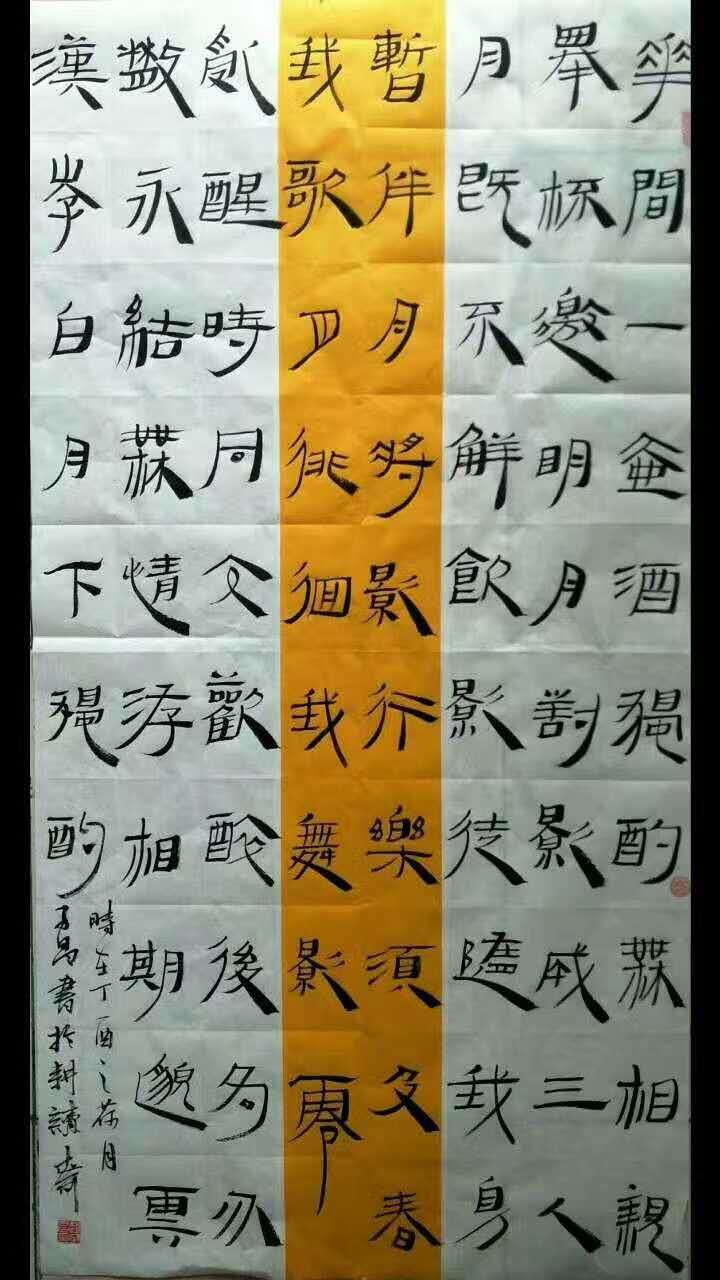 花間一壺酒獨酌無相親
舉杯邀明月對影成三人
月既不解飲影徒隨我身
暫伴月將影行樂須及春
我歌月徘徊我舞影零
亂醒時同交歡醉後各分
散永結無情游相期邈雲
漢李白月下獨酌
時在丁酉之荷月
子昌書於耕讀齋